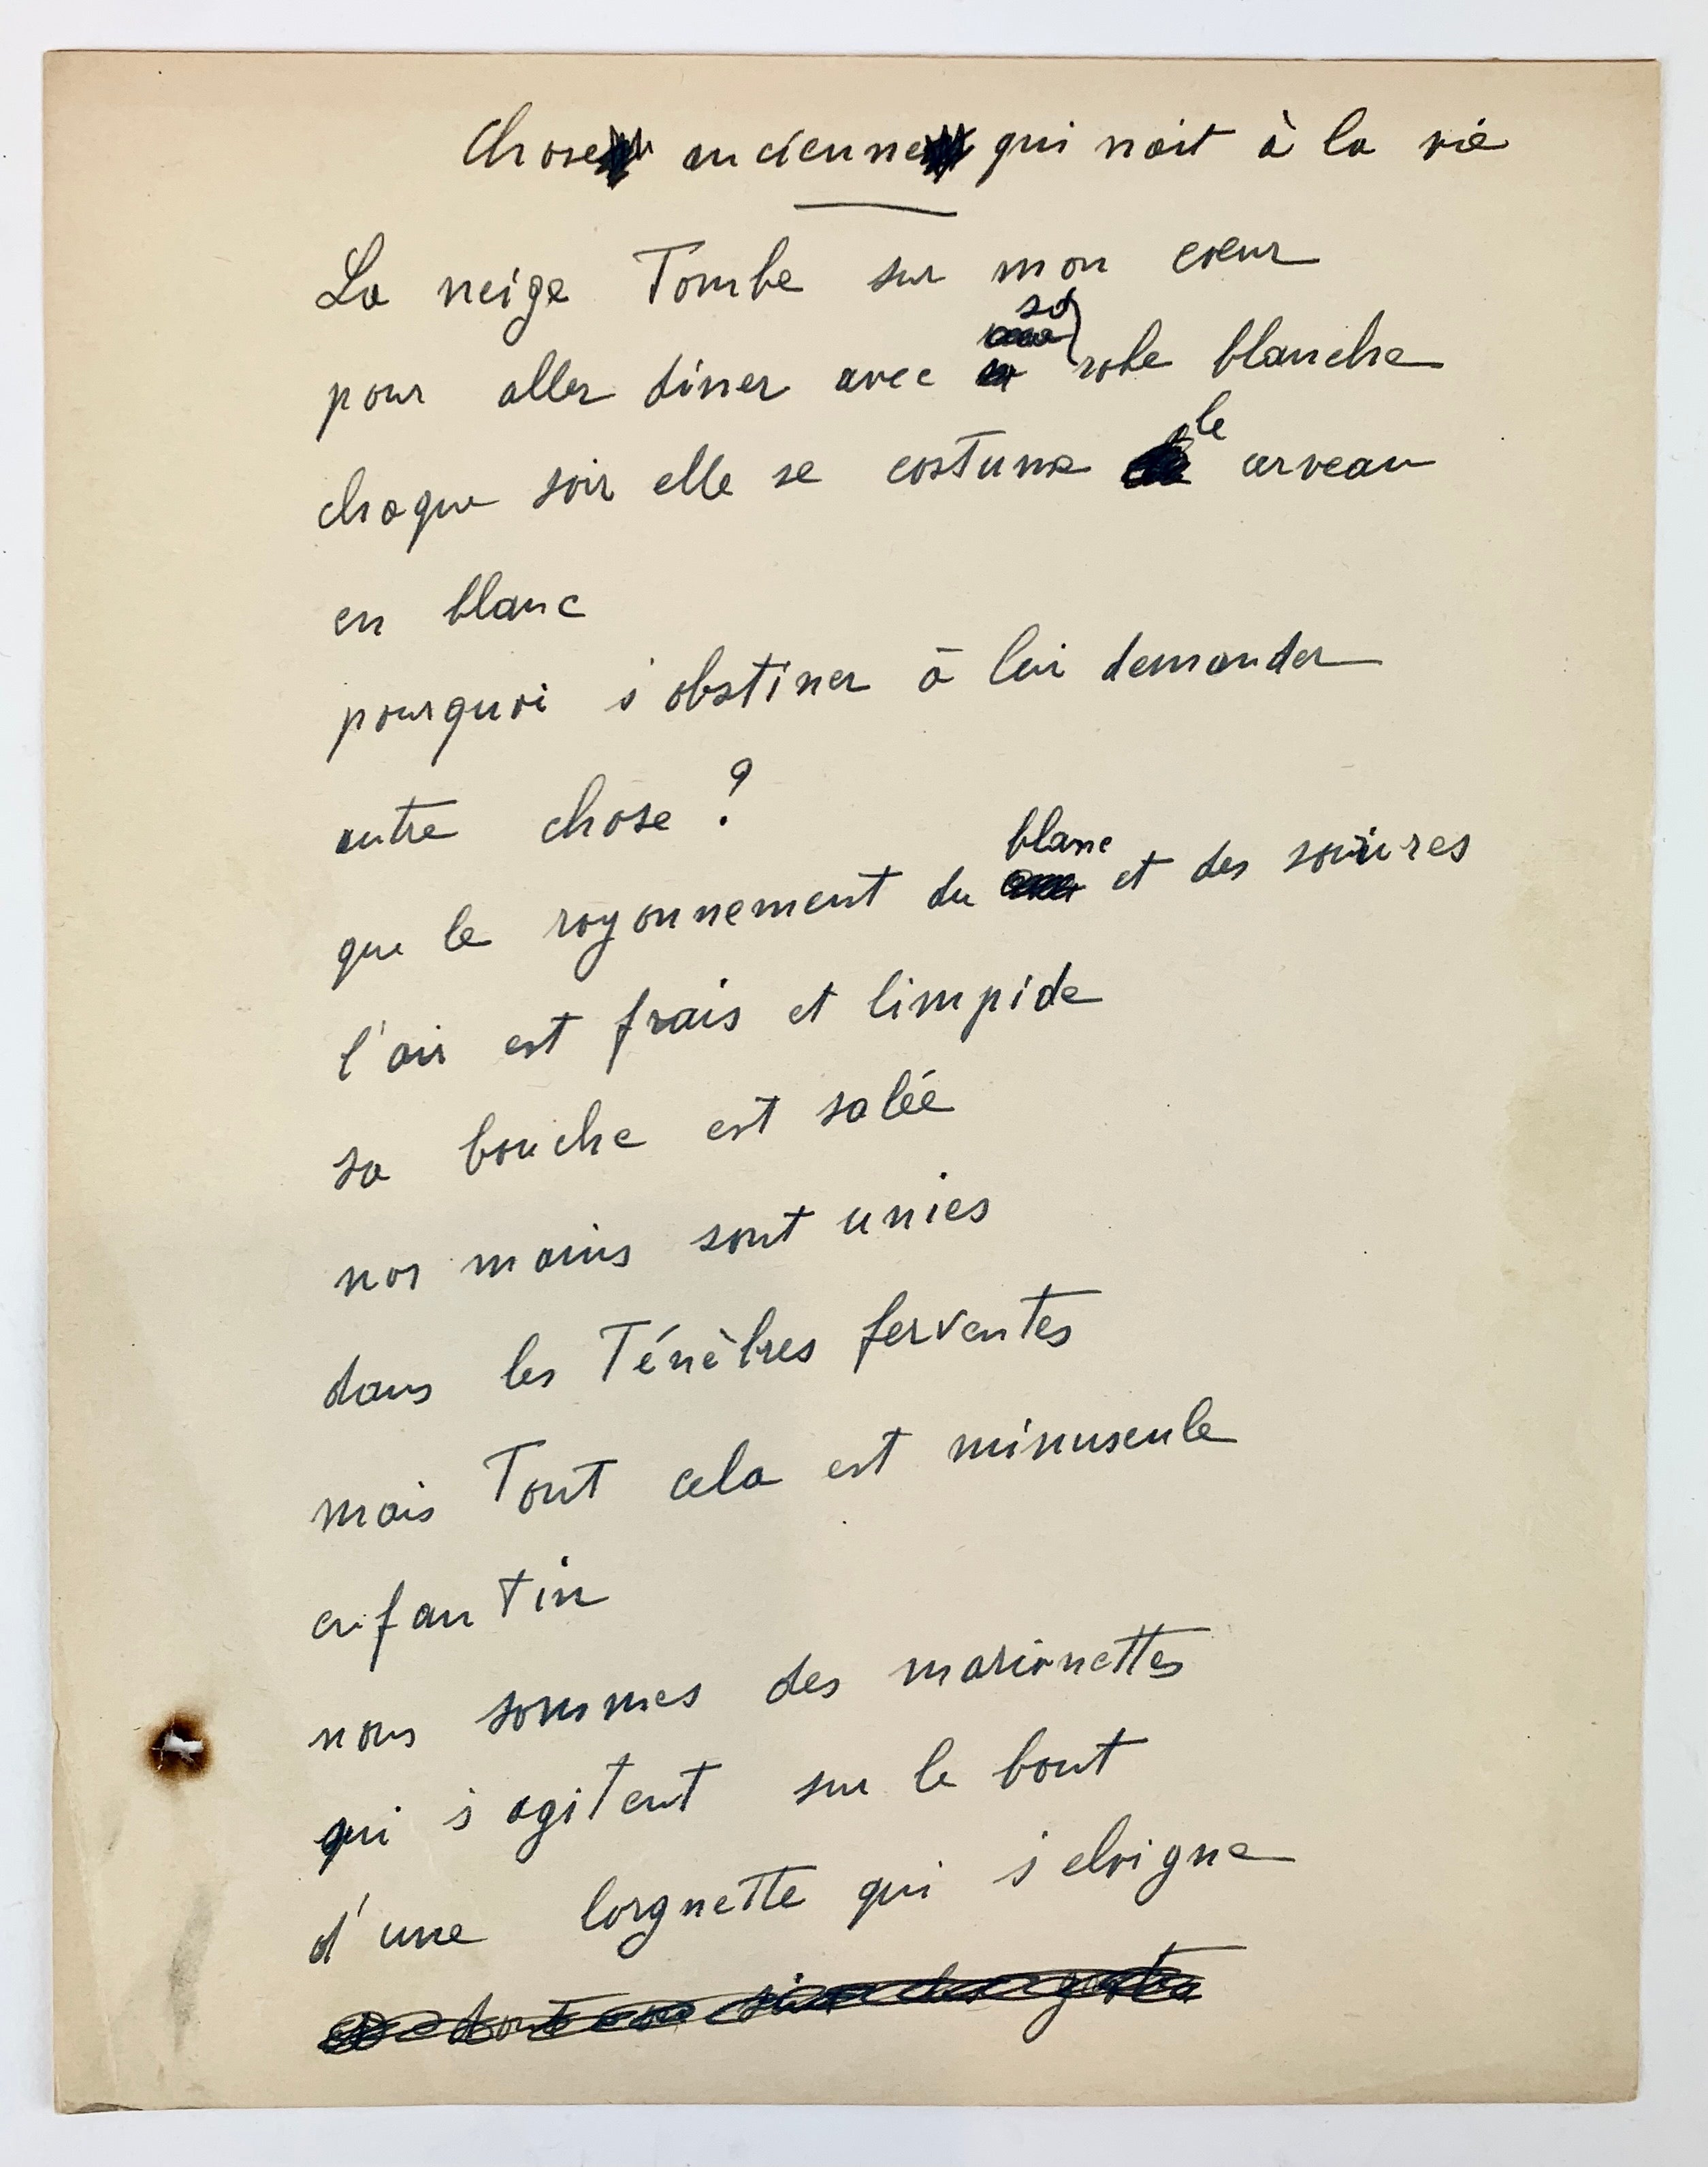 Chose ancienne qui nait à la vie
La neige Tombe sur mon cœur
pour aller diner avec sa robe blanche
chaque soir elle se costume le cerveau
en blanc
pourquoi s'obstiner à lui demander
autre chose ?
que le rayonnement du blanc et des sourires
l'air est frais et limpide
sa bouche est salée
nos mains sont unies
dans les Ténèbres ferventes
mais Tout cela est minuscule
enfantin
nous sommes des marionettes
qui s'agitent sur le bout
d'une lorgnette qui s'eloigne